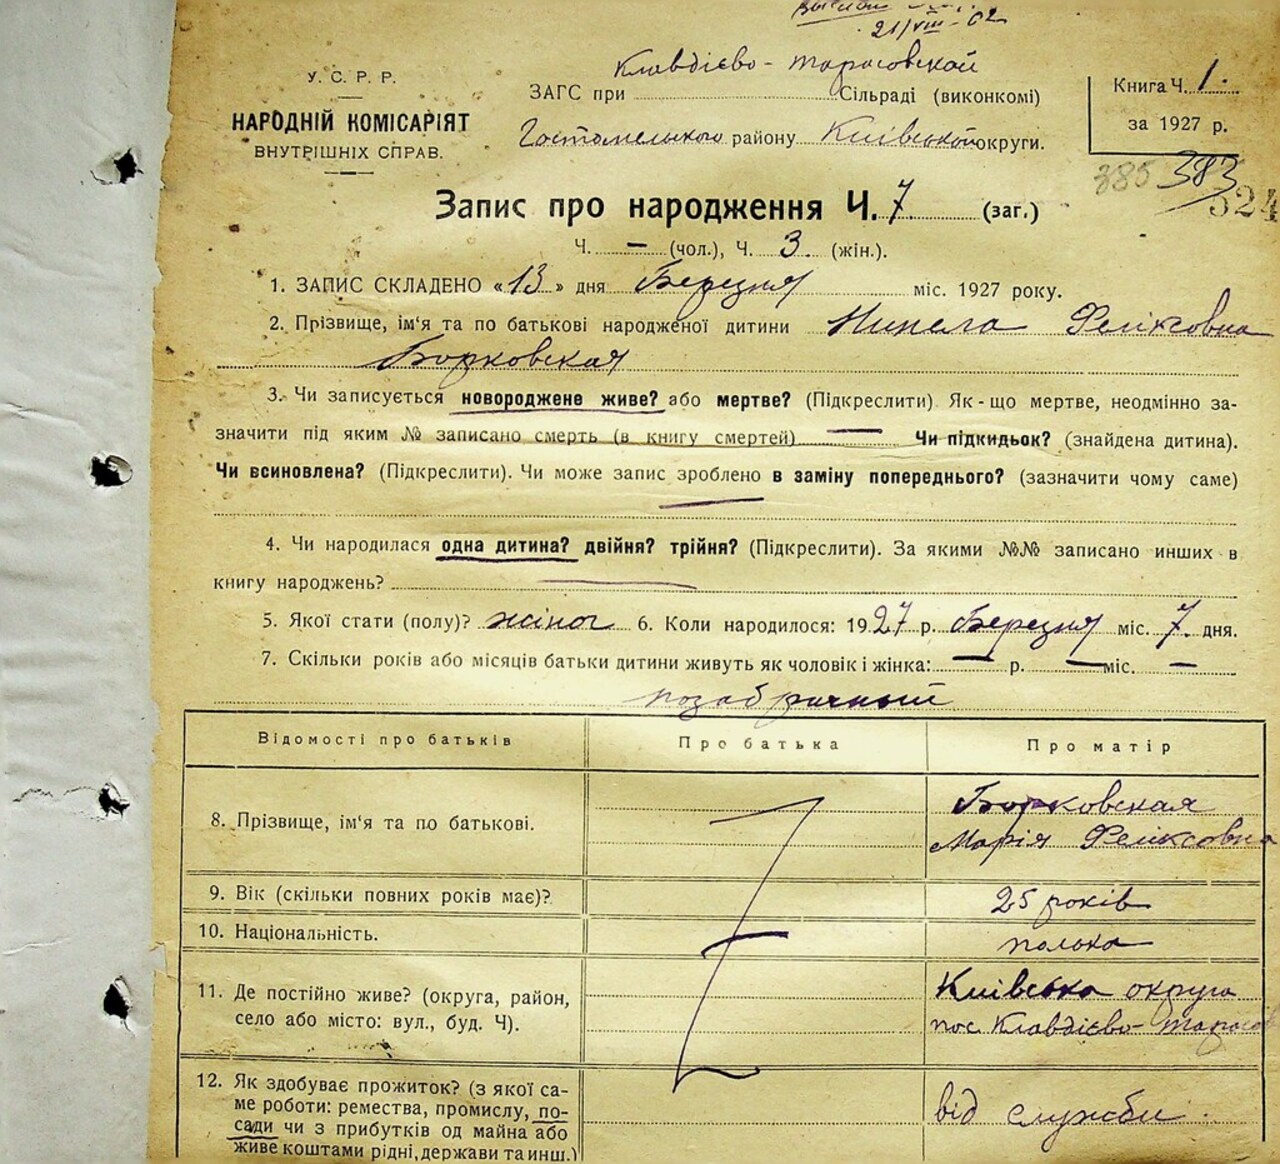 21/VIII-62
У. С. Р. Р.
НАРОДНІЙ КОМІСАРІЯТ
ВНУТРІШНІХ СПРАВ.
Клавдієво-тарасовской
ЗАГС при Сільраді (виконкомі)
Гостомельского району Київської округи.
Книга Ч. 1.
за 1927 р.
385 383
324
Запис про народження Ч. 7 (заг.)
Ч. — (чол.), Ч. 3. (жін.).
1. ЗАПИС СКЛАДЕНО «13» дня Березня міс. 1927 року.
2. Прізвище, ім'я та по батькові народженої дитини Нинела Феліксовна
Борковская
3. Чи записується новороджене живе? або мертве? (Підкреслити) Як-що мертве, неодмінно за-
значити під яким № записано смерть (в книгу смертей) — Чи підкидьок? (знайдена дитина).
Чи всиновлена? (Підкреслити). Чи може запис зроблено в заміну попереднього? (зазначити чому саме)
—
4. Чи народилася одна дитина? двійня? трійня? (Підкреслити). За якими №№ записано инших в
книгу народжень? —
5. Якої стати (полу)? жіноч 6. Коли народилося: 1927 р. Березня міс. 7. дня.
7. Скільки років або місяців батьки дитини живуть як чоловік і жінка: — р. — міс. —
позабрачный
Відомості про батьків Про батька Про матір
8. Прізвище, ім'я та по батькові. Борковская
Марія Феліксовна
9. Вік (скільки повних років має)? 25 років
10. Національність. полька
11. Де постійно живе? (округа, район, Київська округа
село або місто: вул., буд. Ч). пос. Клавдієво-Тарасов
12. Як здобуває прожиток? (з якої са-
ме роботи: ремества, промислу, по- від служби.
сади чи з прибутків од майна або
живе коштами рідні, держави та инш.)